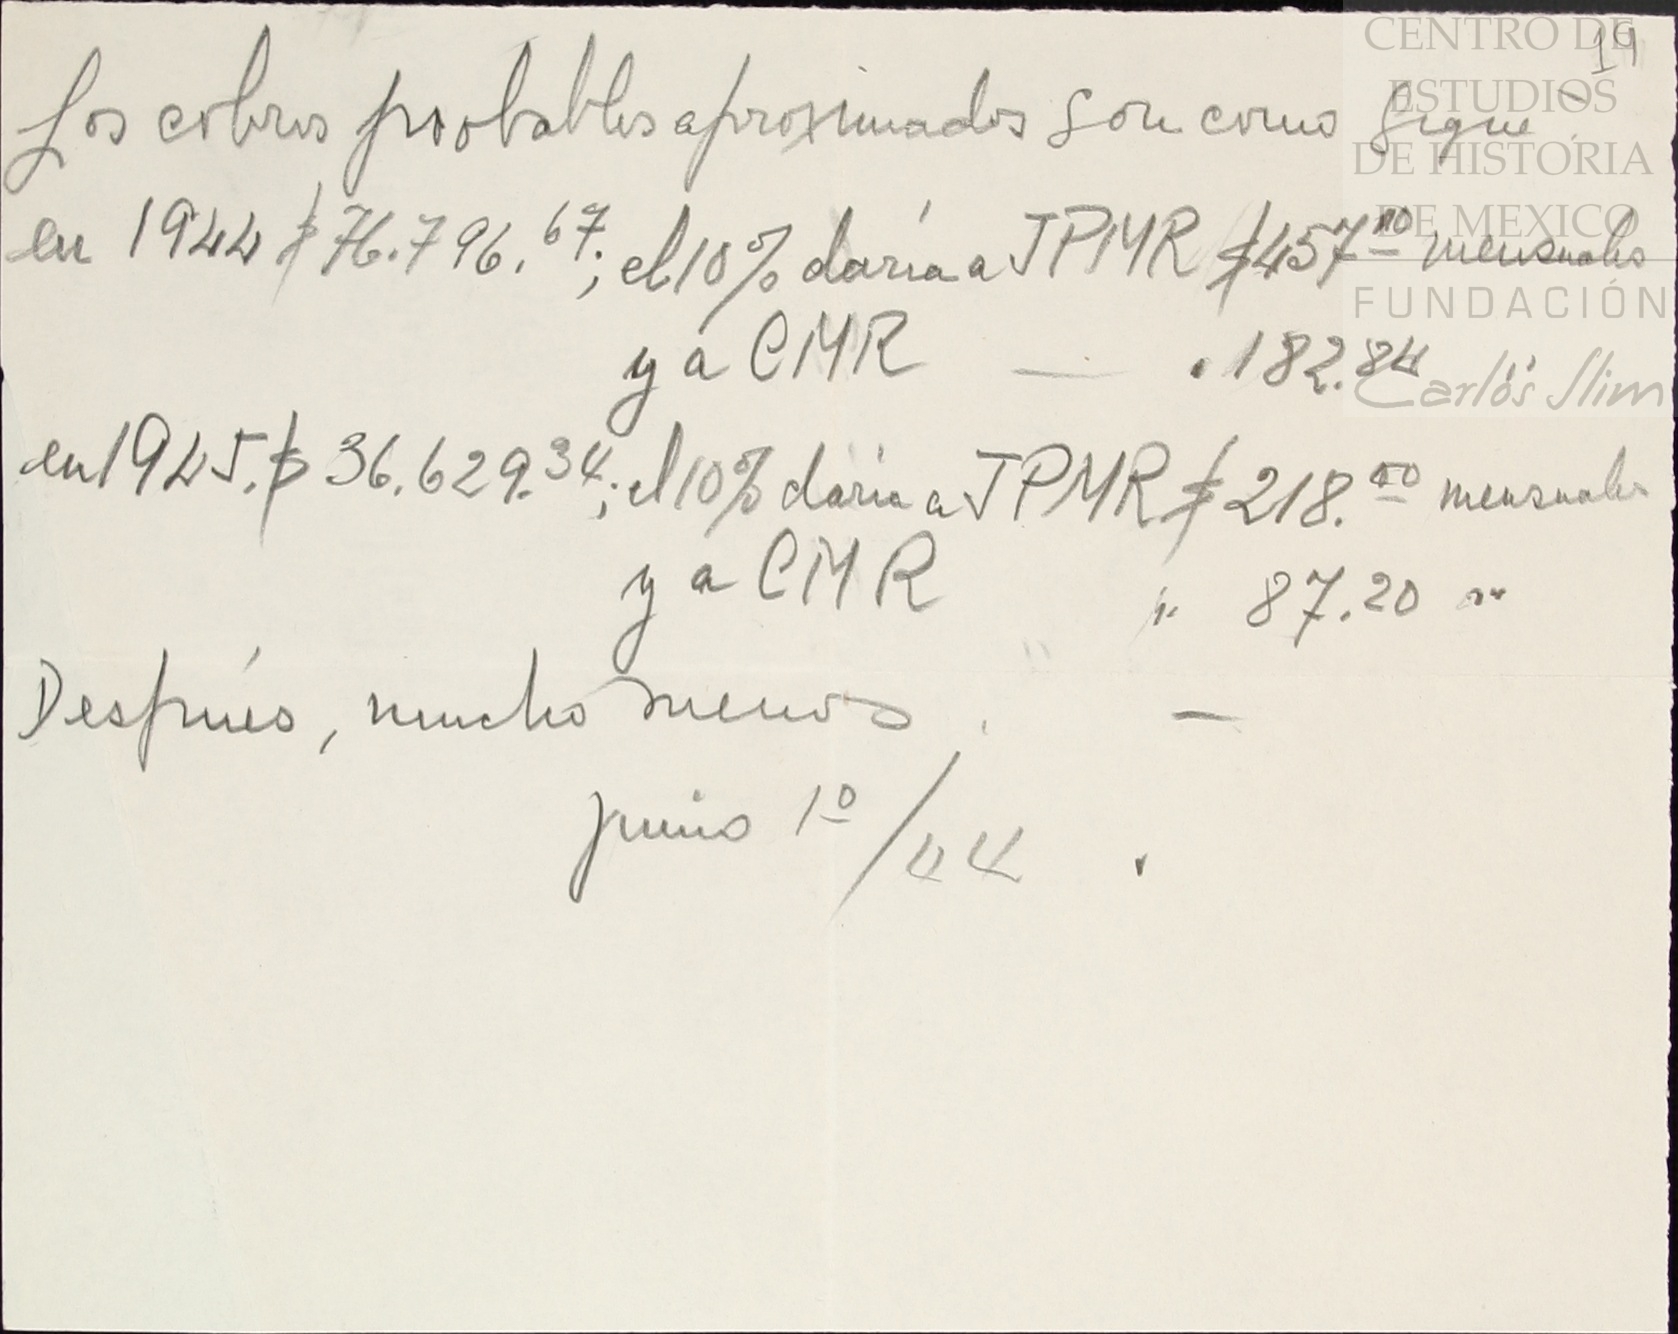 19
Los cobros probables aproximados son como sigue
en 1944 $76.796.67; el 10% daría a JPMR $457.10 mensuales
y a CMR — " 182.84
en 1945. $36.629.34; el 10% daría a JPMR $218.00 mensuales
y a CMR " 87.20 "
Después, mucho menos. —
junio 1º/44.
CENTRO DE
ESTUDIOS
DE HISTORIA
DE MEXICO
FUNDACIÓN
Carlos Slim